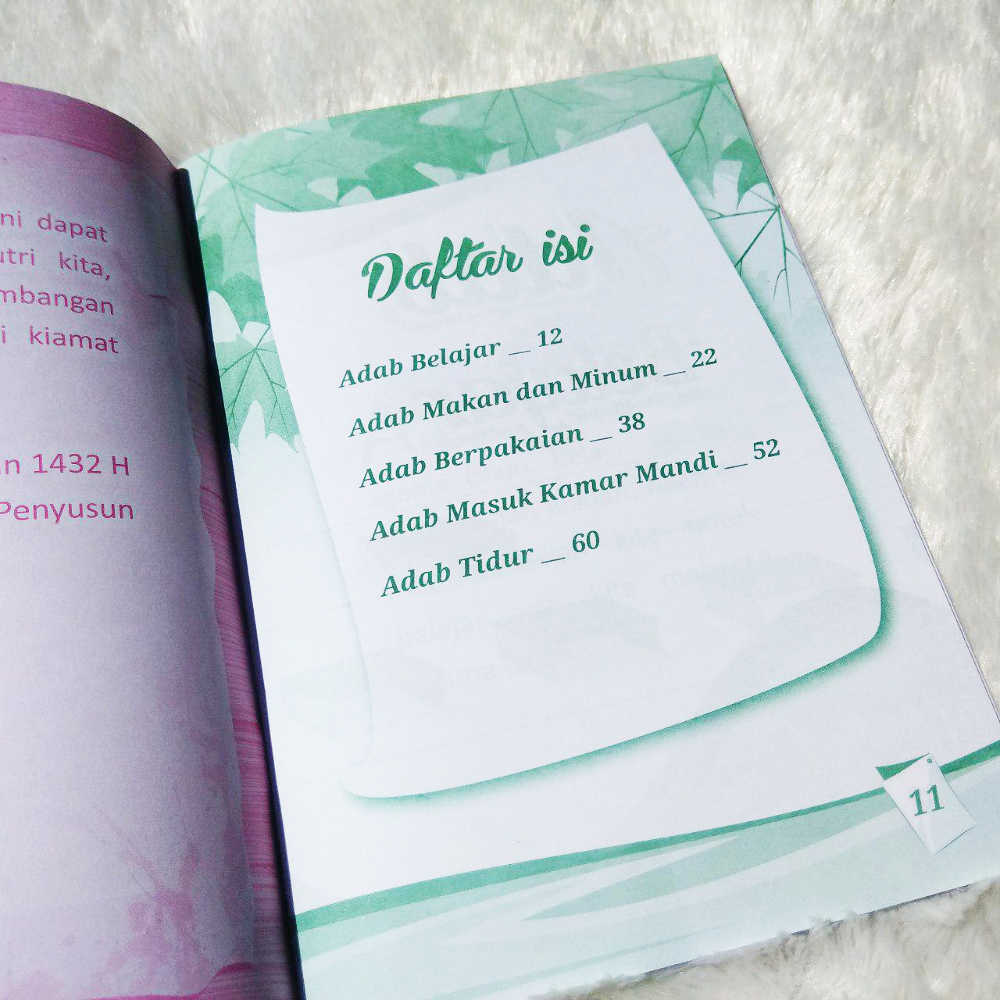 ni dapat
utri kita,
mbangan
i kiamat
n 1432 H
Penyusun
Daftar isi
Adab Belajar __ 12
Adab Makan dan Minum __ 22
Adab Berpakaian __ 38
Adab Masuk Kamar Mandi __ 52
Adab Tidur __ 60
11